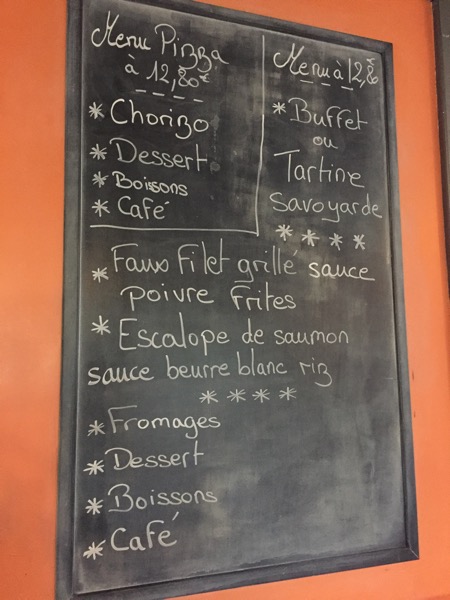 Menu Pizza
à 12,80€
* Chorizo
* Dessert
* Boissons
* Café
Menu à 12,80
* Buffet
ou
Tartine
Savoyarde
* * * *
* Faux Filet grillé sauce
poivre frites
* Escalope de saumon
sauce beurre blanc riz
* * * *
* Fromages
* Dessert
* Boissons
* Café